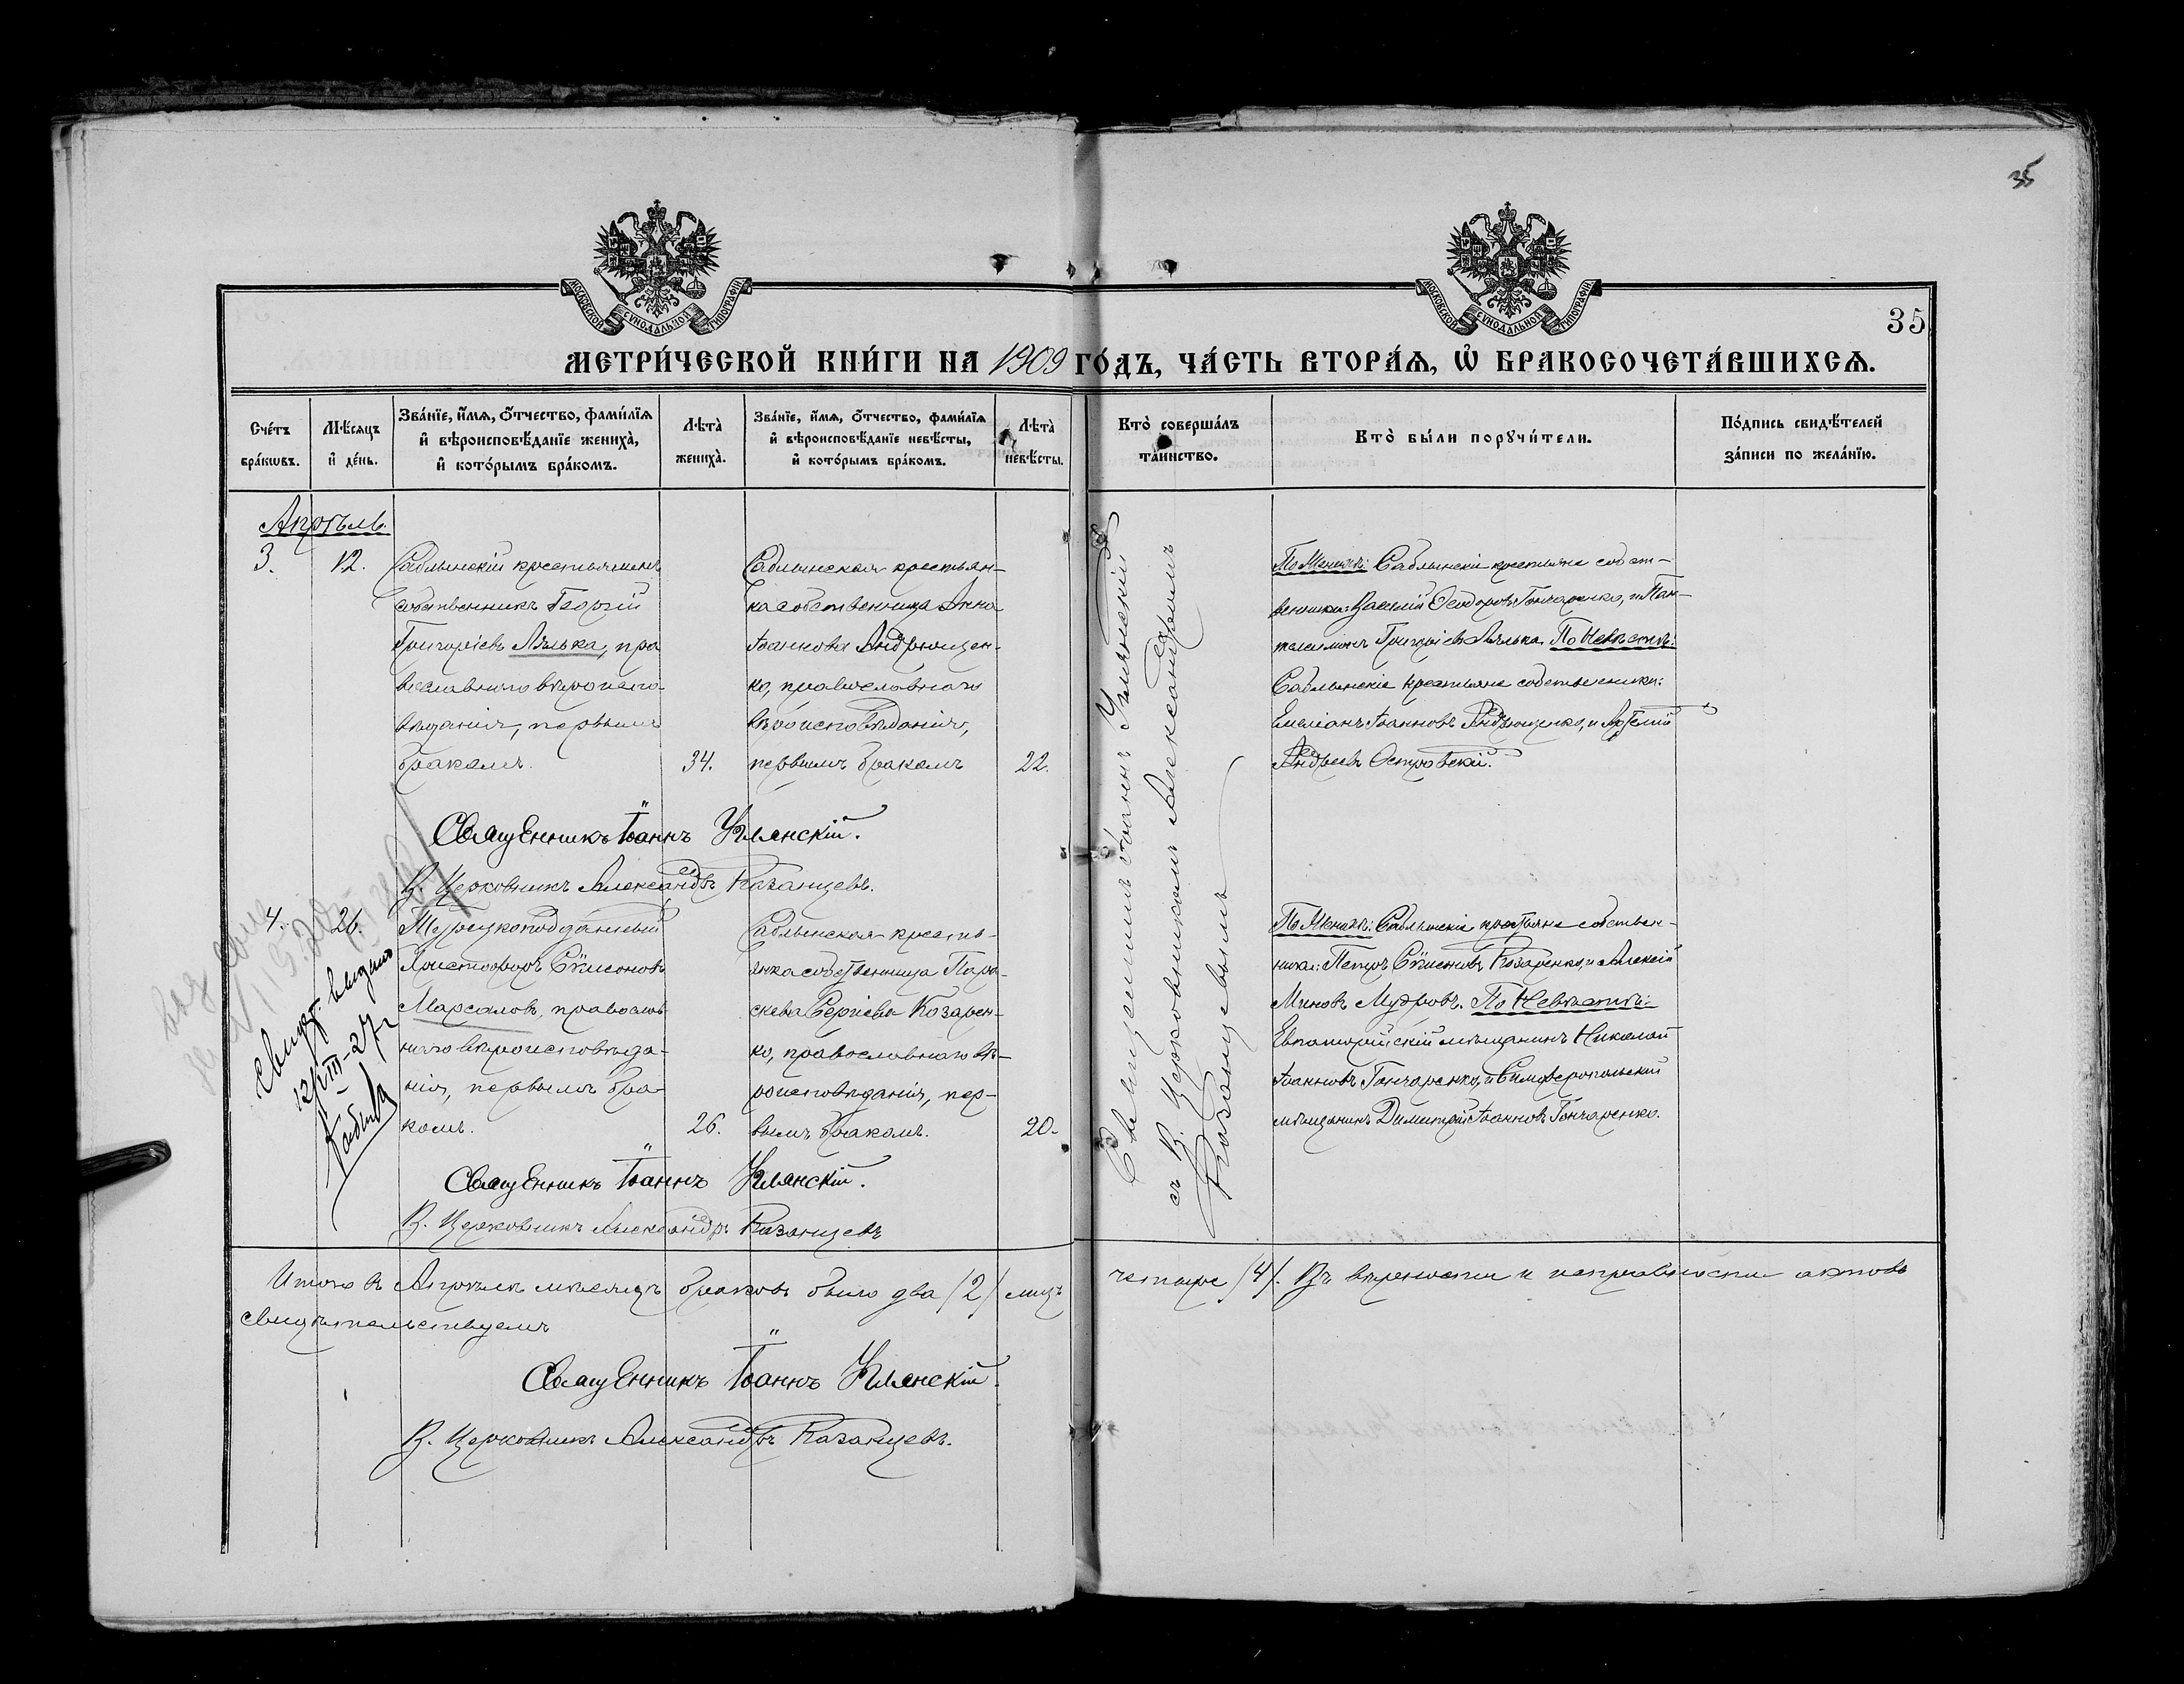 35
МОСКОВСКОЙ СѴНОДАЛЬНОЙ ТИПОГРАФІИ
МОСКОВСКОЙ СѴНОДАЛЬНОЙ ТИПОГРАФІИ
35
МЕТРИ́ЧЕСКОЙ КНИ́ГИ НА 1909 ГО́ДЪ, ЧА́СТЬ ВТОРА́Ѧ, Ѽ БРАКОСОЧЕТА́ВШИХСѦ.
Сче́тъ
бра́кѡвъ.
Мѣ́сѧцъ
и҆ де́нь.
Зва́нїе, и҆́мѧ, ѻ҆́тчество, фами́лїѧ
и҆ вѣроисповѣ́данїе жениха̀,
и҆ кото́рымъ бра́комъ.
Лѣта̀
жениха̀.
Зва́нїе, и҆́мѧ, ѻ҆́тчество, фами́лїѧ
и҆ вѣроисповѣ́данїе невѣ́сты,
и҆ кото́рымъ бра́комъ.
Лѣта̀
невѣ́сты.
Кто̀ соверша́лъ
та́инство.
Кто̀ бы́ли порꙋчи́тели.
По́дпись свидѣ́телей
за́писи по жела́нїю.
Апрѣль.
3.
12.
Саблынскій крестьянинъ
собственникъ Георгій
Григоріевъ Лялька, пра
вославнаго вѣроиспо-
вѣданія, первымъ
бракомъ.
34.
Саблынская крестьян-
ка собственница Анна
Іоаннова Андрющен-
ко, православнаго
вѣроисповѣданія,
первымъ бракомъ
22.
По Женихѣ: Саблынскіе крестьяне собст-
венники: Василій Ѳеодоровъ Гончаренко, и Пан-
телеимонъ Григоріевъ Лялька. По Невѣстѣ:
Саблынскіе крестьяне собственники:
Емеліанъ Іоанновъ Андрющенко, и Артемій
Андреевъ Островскій.
Священникъ Іоаннъ Углянскій.
В. Церковникъ Александръ Казанцевъ.
4.
26.
Турецкоподданный
Христофоръ Сѵмеоновъ
Марсаловъ, православ
наго вѣроисповѣда-
нія, первымъ бра-
комъ.
26.
Саблынская кресть-
янка собственница Пара-
скева Сергіева Козарен-
ко, православнаго вѣ-
роисповѣданія, пер-
вымъ бракомъ.
20.
По Женихѣ: Саблынскіе крестьяне собствен-
ники: Петръ Сѵмеоновъ Козаренко, и Алексій
Миновъ Мудровъ. По Невѣстѣ:
Евпаторійскій мѣщанинъ Николай
Іоанновъ Гончаренко, и Симферопольскій
мѣщанинъ Димитрій Іоанновъ Гончаренко.
Свидѣт. выдано
12/VIII-27 г
Священникъ Іоаннъ Углянскій.
В. Церковникъ Александръ Казанцевъ
Священникъ Іоаннъ Углянскій
съ В. Церковникомъ Александромъ
Казанцевымъ
Итого въ Апрѣлѣ мѣсяцѣ браковъ было два /2/ лицъ четыре /4/. Въ вѣрности и исправности актовъ
свидѣтельствуемъ
Священникъ Іоаннъ Углянскій.
В. Церковникъ Александръ Казанцевъ.